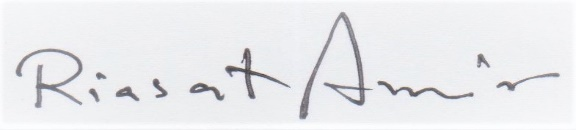 Riasat Amir